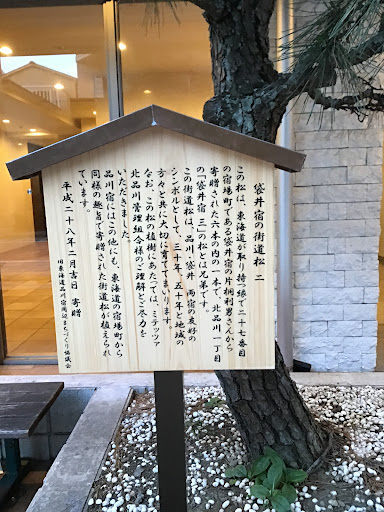 袋井宿の街道松 二
この松は、東海道が取り持つ縁で二十七番目
の宿場町である袋井宿の片桐利男さんから
寄贈された六本の内の一本で、北品川一丁目
の「袋井宿 三」の松とは兄弟です。
この街道松は、品川、袋井 両宿の友好の
シンボルとして、三十年、五十年と地域の
方々と共に大切に育ててまいります。
なお、この松の植樹にあたっては、ミテッツァ
北品川管理組合様のご理解とご尽力を
いただきました。
品川宿にはこの他にも、東海道の宿場町から
同様の趣旨で寄贈された街道松が植えられ
ています。
平成二十八年二月吉日 寄贈
旧東海道品川宿周辺まちづくり協議会